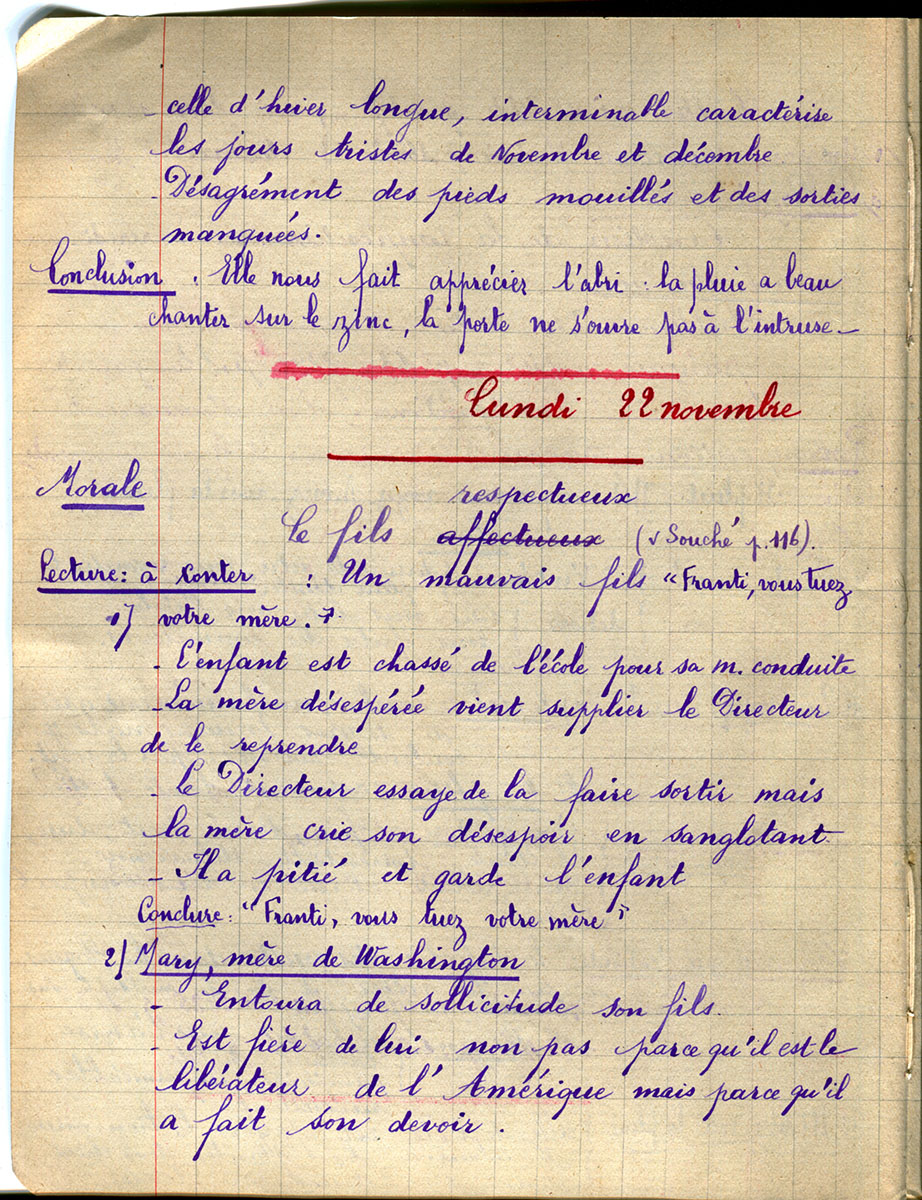 - celle d'hiver longue, interminable caractérise
les jours tristes de Novembre et décembre
- Désagrément des pieds mouillés et des sorties
manquées.
Conclusion : Elle nous fait apprécier l'abri : la pluie a beau
chanter sur le zinc, la porte ne s'ouvre pas à l'intruse -
Lundi 22 novembre
Morale
respectueux
Le fils affectueux (v Souché p. 116).
Lecture : à conter : Un mauvais fils "Franti, vous tuez
1) votre mère."
- L'enfant est chassé de l'école pour sa m. conduite
- La mère désespérée vient supplier le Directeur
de le reprendre
- Le Directeur essaye de la faire sortir mais
la mère crie son désespoir en sanglotant.
- Il a pitié et garde l'enfant
Conclure : "Franti, vous tuez votre mère"
2) Mary, mère de Washington
- Entoura de sollicitude son fils.
- Est fière de lui non pas parce qu'il est le
libérateur de l'Amérique mais parce qu'il
a fait son devoir.